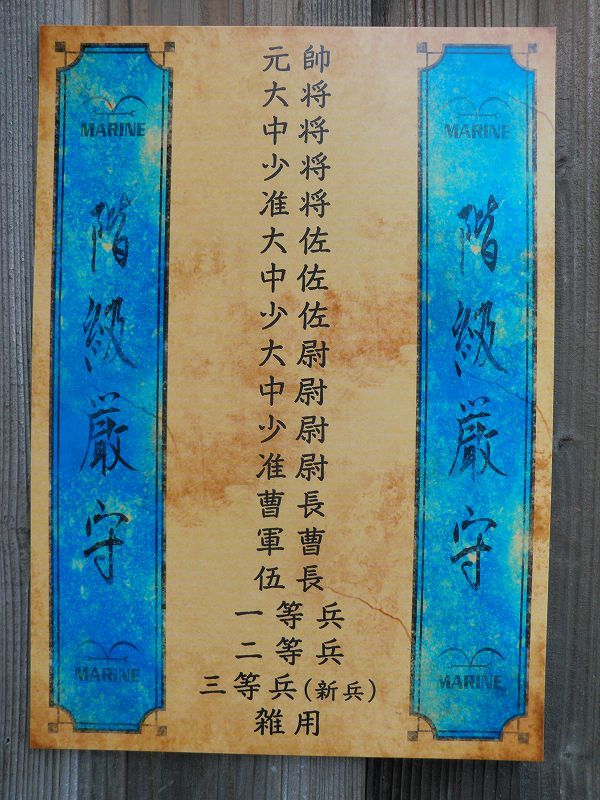 MARINE
階級厳守
MARINE
元帥
大将
中将
少将
准将
大佐
中佐
少佐
大尉
中尉
少尉
准尉
曹長
軍曹
伍長
一等兵
二等兵
三等兵(新兵)
雑用
MARINE
階級厳守
MARINE